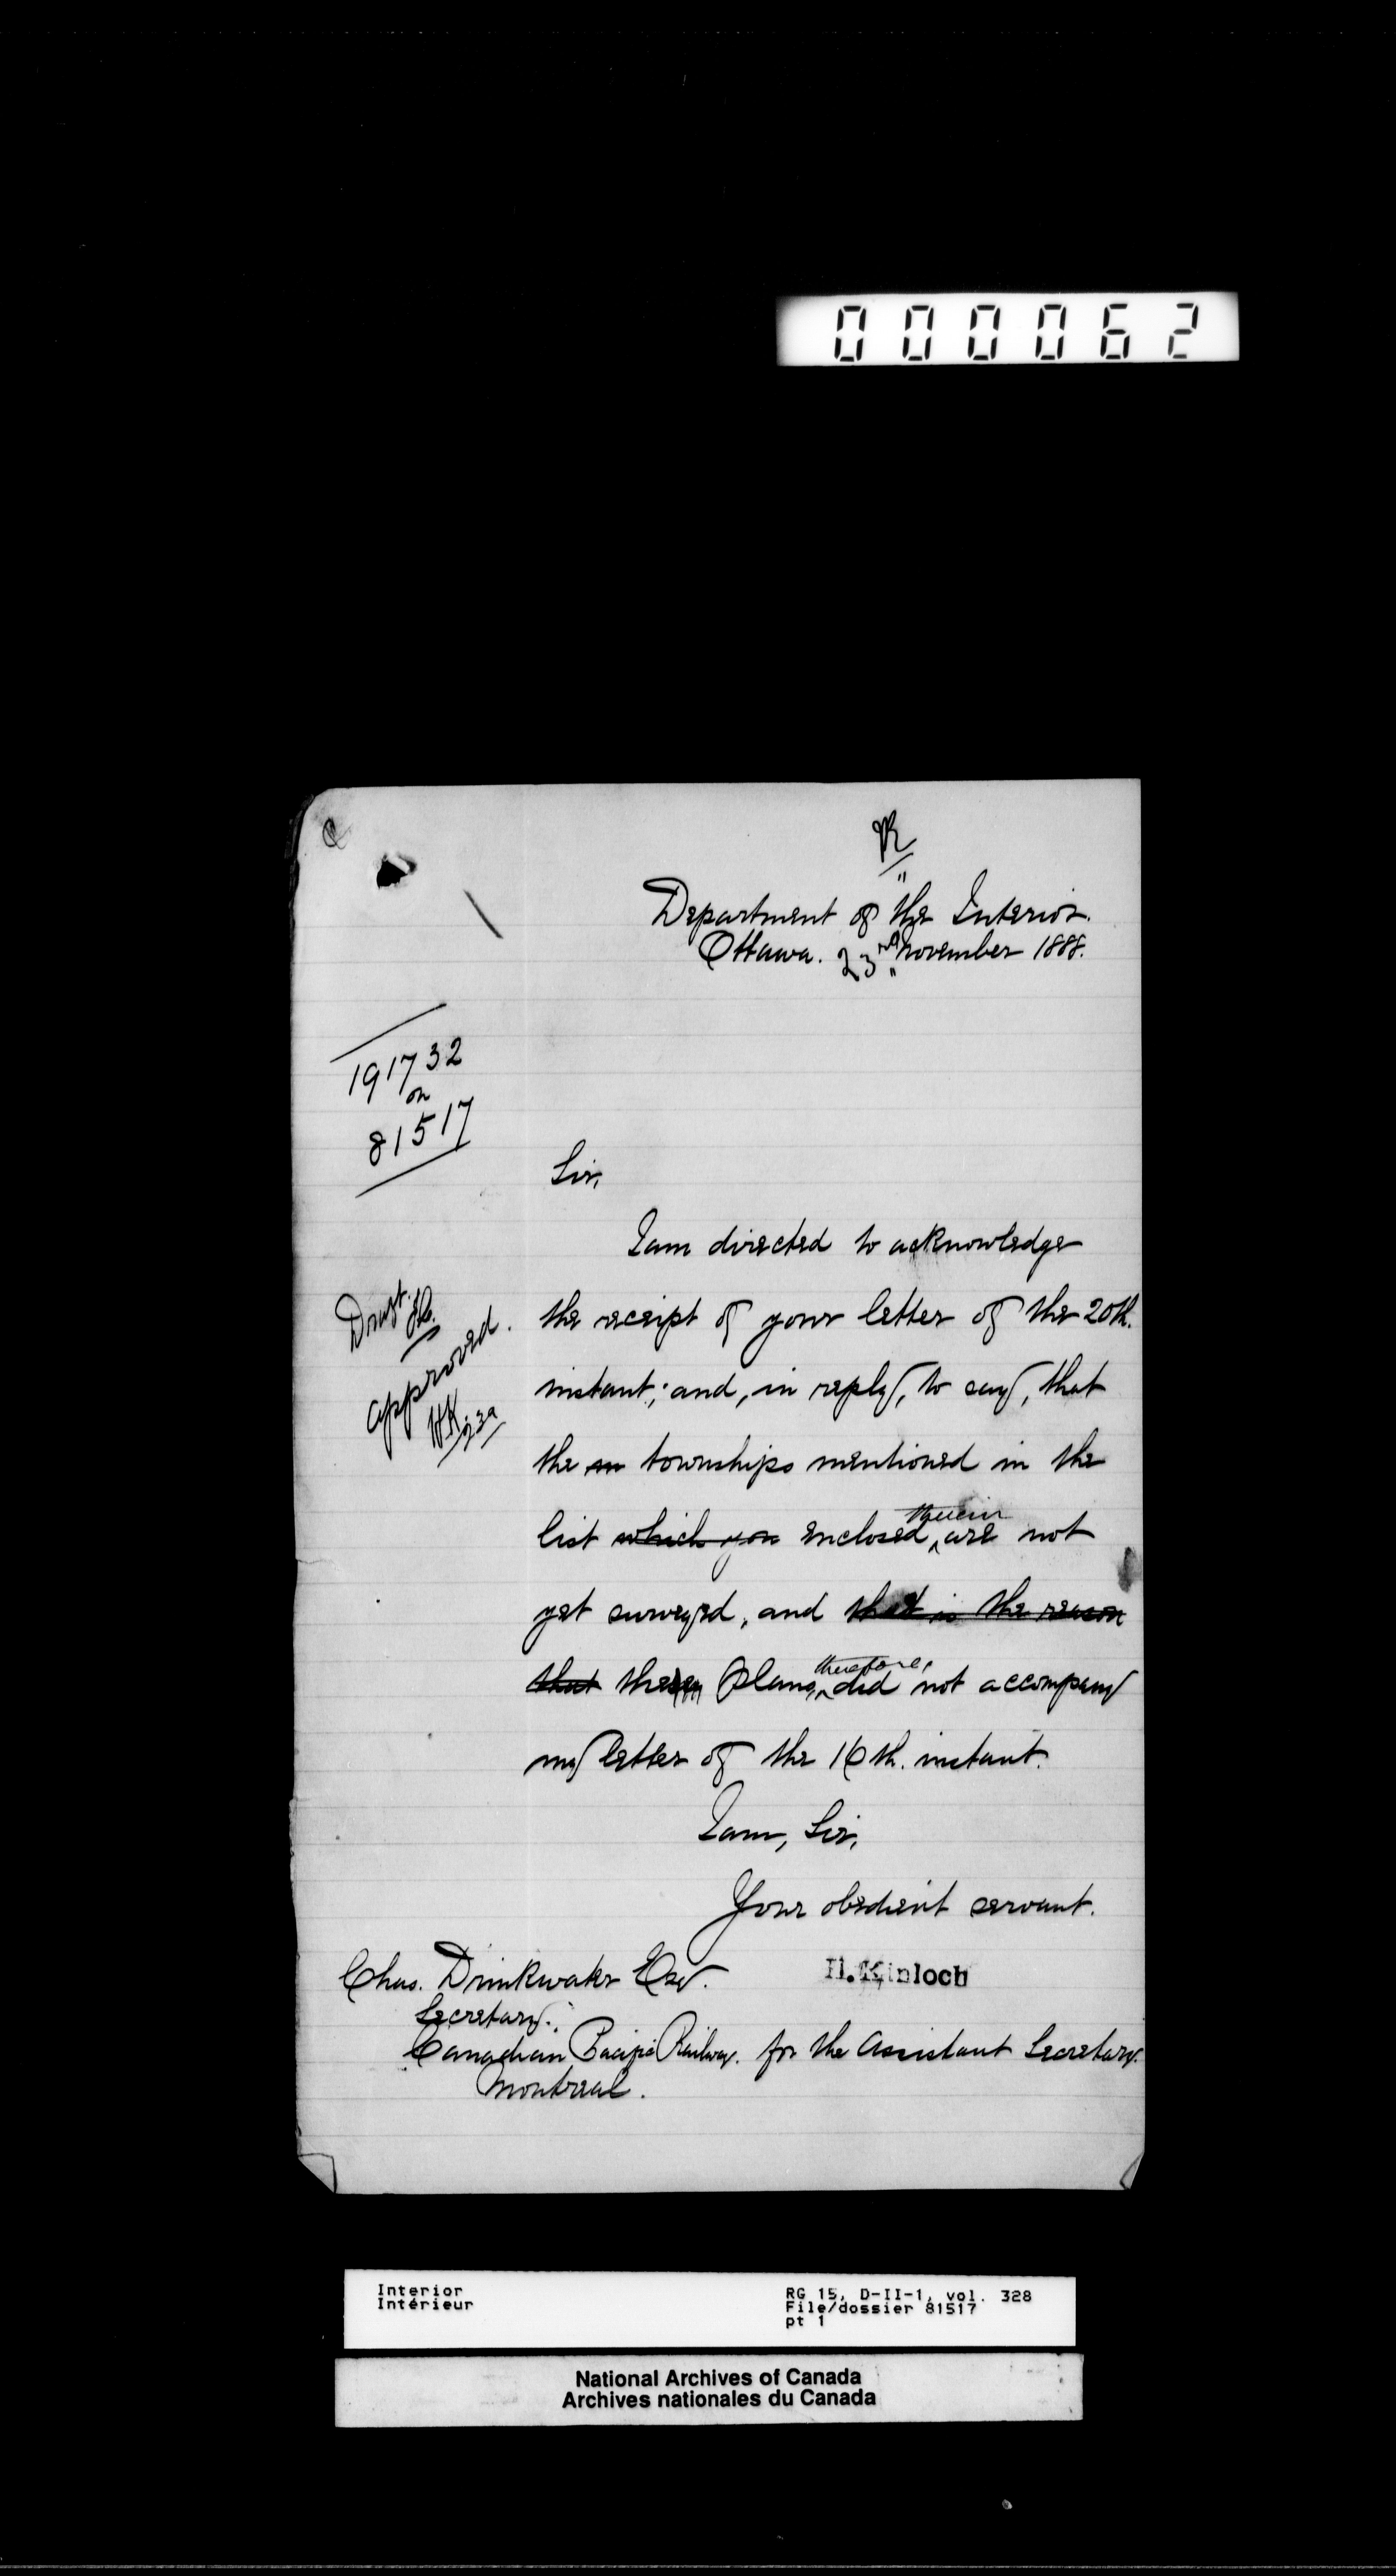 000062
R
Department of the Interior.
Ottawa. 23rd November 1888.
191732
on
81517
Sir,
I am directed to acknowledge
the receipt of your letter of the 20th.
instant; and, in reply, to say, that
the townships mentioned in the
list which you enclosed, therein are not
yet surveyed, and that is the reason
that these Plans, therefore, did not accompany
my letter of the 16th. instant.
I am, Sir,
Your obedient servant.
Draft.
approved.
H.Kinloch
Chas. Drinkwater Esq.
Secretary.
Canadian Pacific Railway. for the Assistant Secretary.
Montreal.
Interior
Intérieur
RG 15, D-II-1, vol. 328
File/dossier 81517
pt 1
National Archives of Canada
Archives nationales du Canada